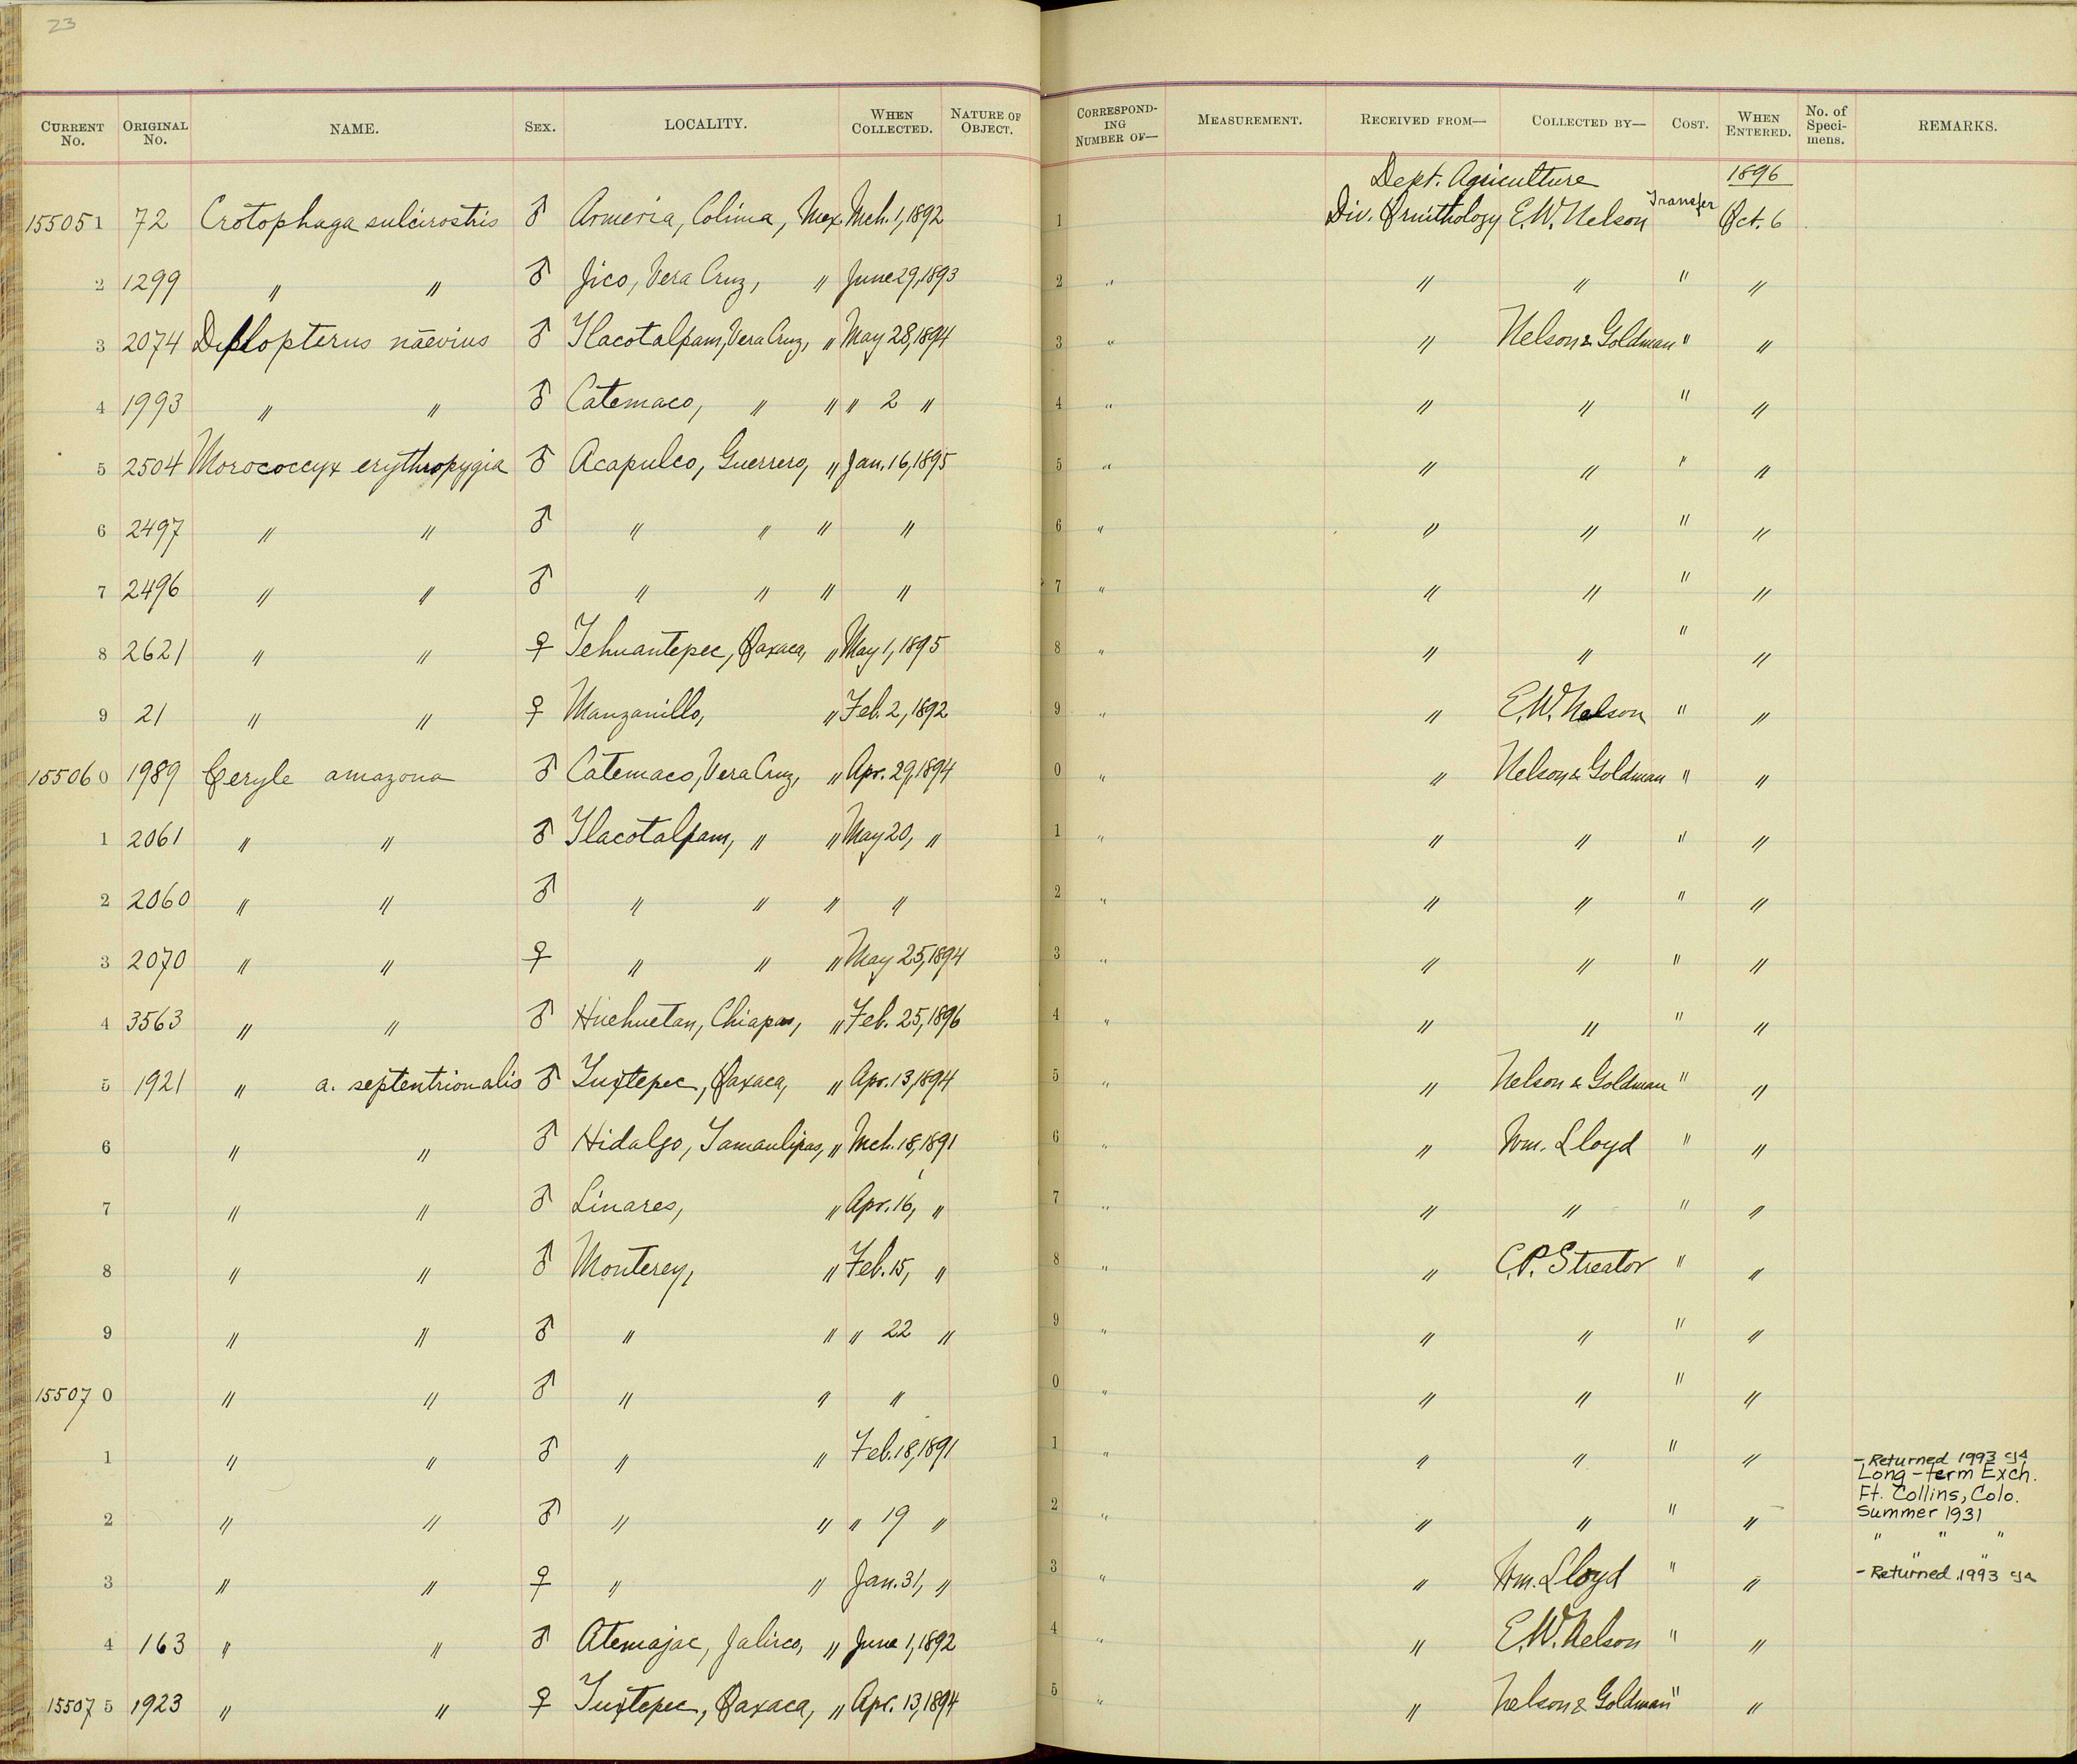 23
CURRENT No. ORIGINAL No. NAME. SEX. LOCALITY. WHEN COLLECTED. NATURE OF OBJECT. CORRESPONDING NUMBER OF— MEASUREMENT. RECEIVED FROM— COLLECTED BY— COST. WHEN ENTERED. No. of Specimens. REMARKS.
Dept. Agriculture 1896
155051 72 Crotophaga sulcirostris ♂ Armeria, Colima, Mex. Mch. 1, 1892 1 Div. Ornithology E.W. Nelson Transfer Oct. 6
2 1299 " " ♂ Jico, Vera Cruz, " June 29, 1893 2 " " " " "
3 2074 Diplopterus naevius ♂ Tlacotalpam, Vera Cruz, " May 28, 1894 3 " " Nelson & Goldman " "
4 1993 " " ♂ Catemaco, " " " 2 " 4 " " " " "
5 2504 Morococcyx erythropygia ♂ Acapulco, Guerrero, " Jan. 16, 1895 5 " " " " "
6 2497 " " ♂ " " " " 6 " " " " "
7 2496 " " ♂ " " " " 7 " " " " "
8 2621 " " ♀ Tehuantepec, Oaxaca, " May 1, 1895 8 " " " " "
9 21 " " ♀ Manzanillo, " Feb. 2, 1892 9 " " E.W. Nelson " "
155060 1989 Ceryle amazona ♂ Catemaco, Vera Cruz, " Apr. 29, 1894 0 " " Nelson & Goldman " "
1 2061 " " ♂ Tlacotalpam, " " May 20, " 1 " " " " "
2 2060 " " ♂ " " " " 2 " " " " "
3 2070 " " ♀ " " " May 25, 1894 3 " " " " "
4 3563 " " ♂ Huehuetan, Chiapas, " Feb. 25, 1896 4 " " " " "
5 1921 " a. septentrionalis ♂ Tuxtepec, Oaxaca, " Apr. 13, 1894 5 " " Nelson & Goldman " "
6 " " ♂ Hidalgo, Tamaulipas, " Mch. 18, 1891 6 " " Wm. Lloyd " "
7 " " ♂ Linares, " Apr. 16, " 7 " " " " "
8 " " ♂ Monterey, " Feb. 15, " 8 " " C.P. Streator " "
9 " " ♂ " " " 22 " 9 " " " " "
155070 " " ♂ " " " 0 " " " " "
1 " " ♂ " " Feb. 18, 1891 1 " " " " " - Returned 1993
Long-term Exch.
Ft. Collins, Colo.
2 " " ♂ " " " 19 " 2 " " " " " Summer 1931
" " "
" "
3 " " ♀ " " Jan. 31, " 3 " " Wm. Lloyd " " - Returned 1993
4 163 " " ♂ Atemajac, Jalisco, " June 1, 1892 4 " " E.W. Nelson " "
155075 1923 " " ♀ Tuxtepec, Oaxaca, " Apr. 13, 1894 5 " " Nelson & Goldman " "